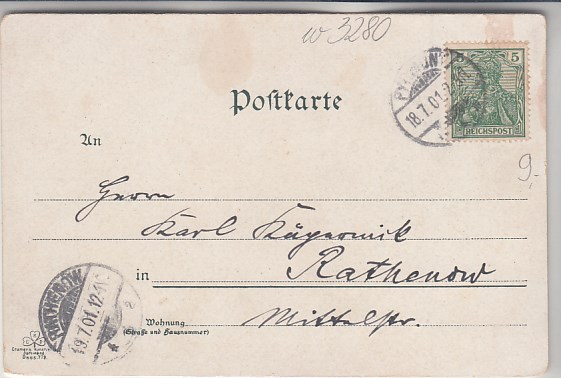 w 3280
PYRMONT
18.7.01
5
REICHSPOST
Postkarte
9,-
An
Herrn
Karl
in Rathenow
RATHENOW
19.7.01.12-1
Wohnung
(Straße und Hausnummer)
Mittelstr.